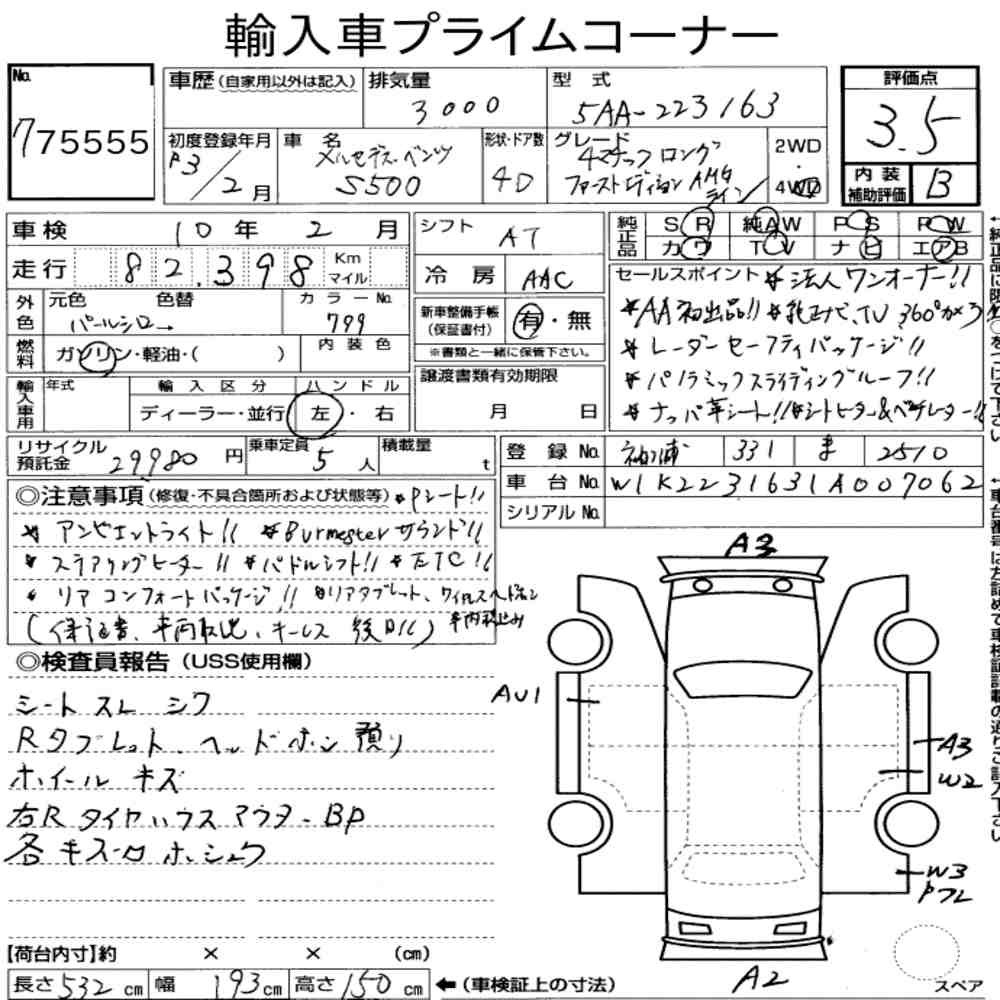 輸入車プライムコーナー
No. 775555
車歴(自家用以外は記入) 排気量 3000 型式 5AA-223163
評価点 3.5
初度登録年月 R3/2月 車名 メルセデス・ベンツ S500 形状・ドア数 4D グレード 4マチック ロング ファーストエディション AMGライン 2WD・4WD
内装補助評価 B
車検 10年 2月
シフト AT
純正品 SR 純AW PS PW カワ TV ナビ エアB
走行 82,398 Km マイル
冷房 AAC
セールスポイント * 法人ワンオーナー!!
外色 元色 パールシロ→ 色替 カラーNo. 799
* AA初出品!! * 純正ナビ、TV 360°カメラ
新車整備手帳(保証書付) 有・無
※書類と一緒に保管下さい。
* レーダーセーフティパッケージ!!
燃料 ガソリン・軽油・( ) 内装色
* パノラミックスライディングルーフ!!
輸入車用 年式 輸入区分 ディーラー・並行 ハンドル 左・右
譲渡書類有効期限 月 日
* ナッパ革シート!! *シートヒーター&ベンチレーター!!
リサイクル預託金 29980円 乗車定員 5人 積載量 t
登録No. 袖ヶ浦 331 ま 2510
車台No. W1K2231631A007062
シリアルNo.
◎注意事項(修復・不具合箇所および状態等) *Pシート!!
* アンビエントライト!! *Burmesterサウンド!!
* ステアリングヒーター!! *パドルシフト!! *ETC!!
* リアコンフォートパッケージ!! *リアタブレット、ワイヤレスヘッドホン
(保証書、車両取説、キーレス 後日!!) 車内積込み
◎検査員報告(USS使用欄)
シート スレ シワ
Rタブレット、ヘッドホン預り
ホイール キズ
右RタイヤハウスアウターBP
各キズ一口ホシュウ
A3
AU1
A3
W2
W3
Pフレ
A2
スペア
【荷台内寸】約 × × (cm)
長さ532cm 幅193cm 高さ150cm ←(車検証上の寸法)